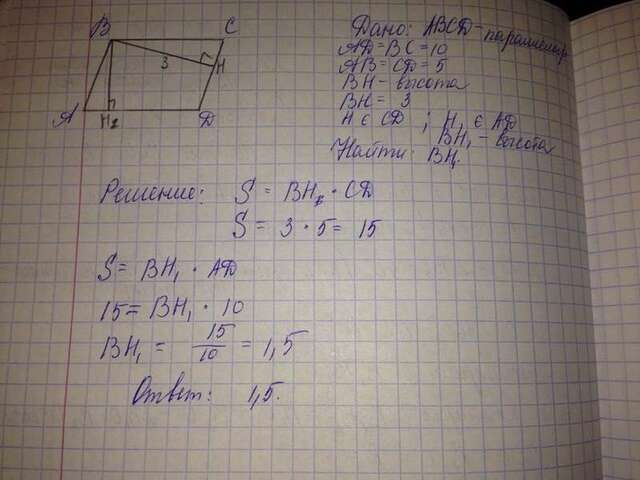 B C
3 H
A H₂ D
Дано: ABCD - параллелогр
AD = BC = 10
AB = CD = 5
BH - высота
BH = 3
H ∈ CD ; H₁ ∈ AD
BH₁ - высота
Найти: BH₁
Решение: S = BH · CD
S = 3 · 5 = 15
S = BH₁ · AD
15 = BH₁ · 10
BH₁ = 15/10 = 1,5
Ответ: 1,5.